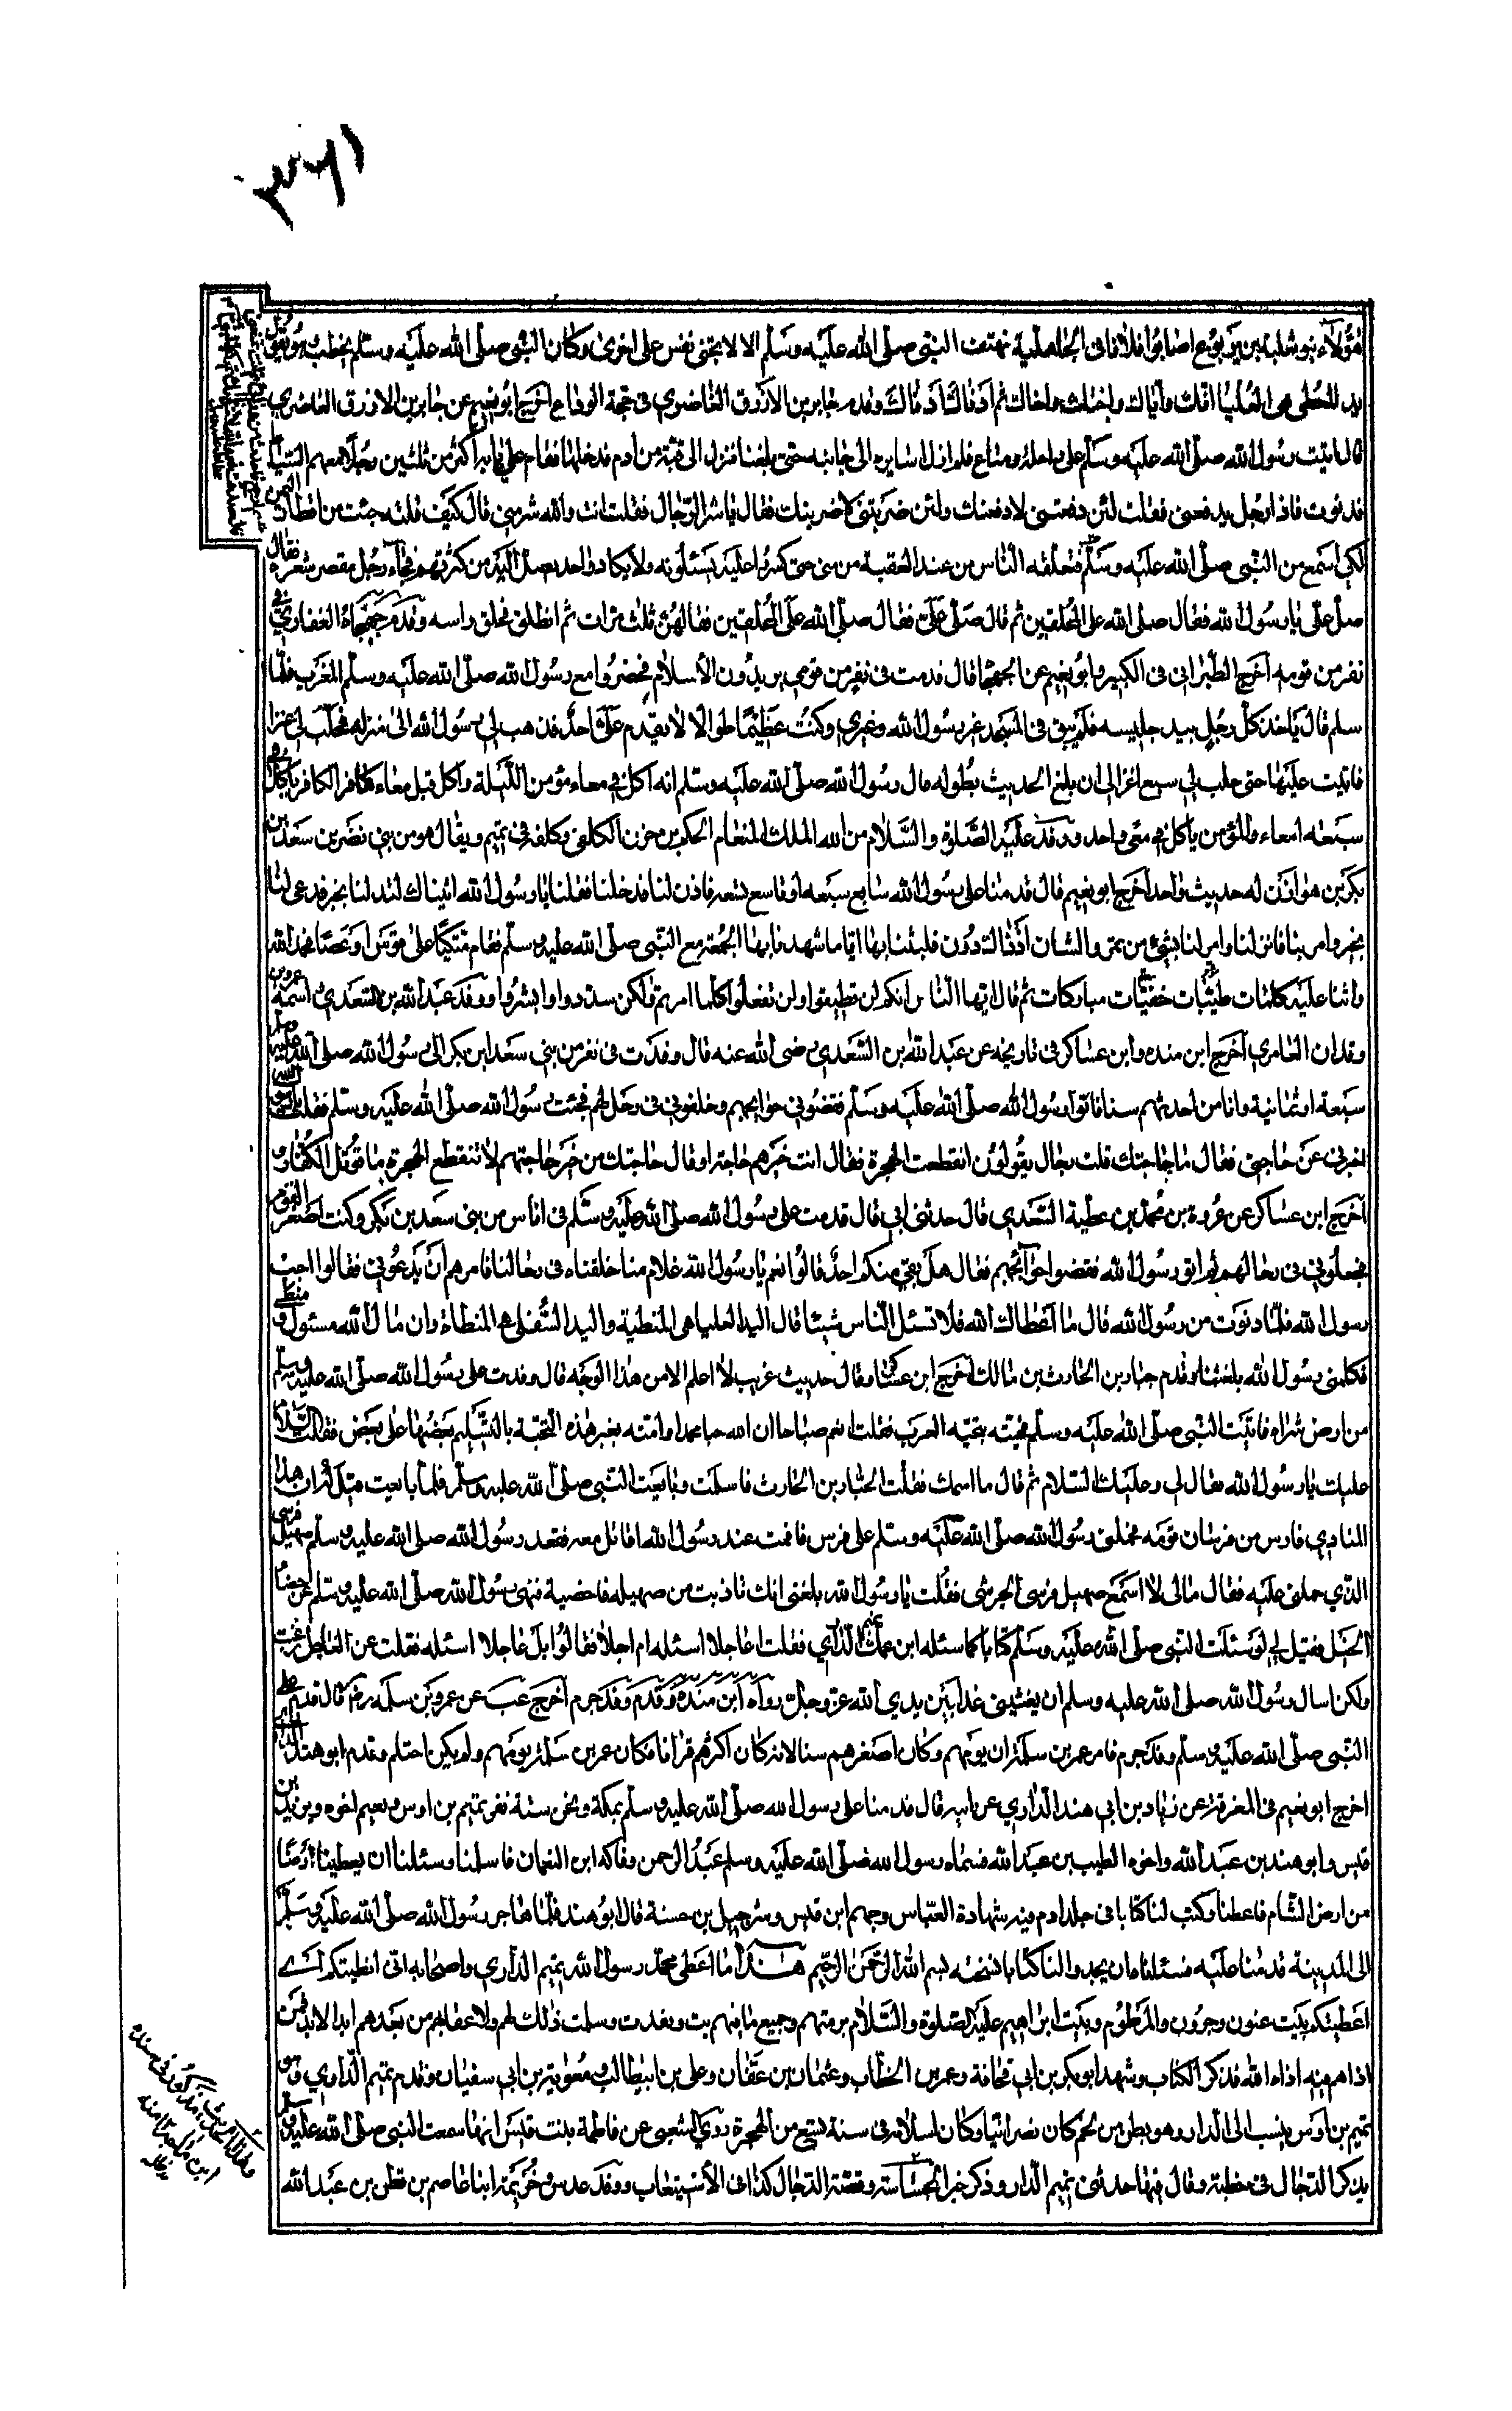 هؤلاء بنو ثعلبة بن يربوع اصابوا فلانا في الجاهلية فهتف النبي صلى الله عليه وسلم الا لا تجني نفس على اخرى وكان النبي صلى الله عليه وسلم يخطب وهو يقول
يد المعطي هي العليا امك واباك واختك واخاك ثم ادناك ادناك وقدم جابر بن الازرق الغاضري في حجة الوداع اخرج ابو نعيم عن جابر بن الازرق الغاضري
قال اتيت رسول الله صلى الله عليه وسلم على راحلة ومتاع فلم ازل اسايره الى جانبه حتى بلغنا فنزل الى قبة من ادم فدخلها فقام على بابه اكثر من ثلثين رجلا معهم السياط
فدنوت فاذا رجل يدفعني فقلت لئن دفعتني لادفعنك ولئن ضربتني لاضربنك فقال يا شر الرجال فقلت انت والله شر مني قال كيف قلت جئت من اقطار اليمن
لكي اسمع من النبي صلى الله عليه وسلم فتعلقه الناس من عند العقبة من منى حتى كثروا عليه يسئلونه ولا يكاد واحد يصل اليه من كثرتهم فجاءه رجل مقصر شعره فقال
صل علي يا رسول الله فقال صلى الله على المحلقين ثم قال صل علي فقال صلى الله على المحلقين فقالهن ثلث مرات ثم انطلق فحلق راسه وقدم جهجاه الغفاري في
نفر من قومه اخرج الطبراني في الكبير وابو نعيم عن الجهجاه قال قدمت في نفر من قومي يريدون الاسلام فحضروا مع رسول الله صلى الله عليه وسلم المغرب فلما
سلم قال ياخذ كل رجل بيد جليسه فلم يبق في المسجد غير رسول الله وغيري وكنت عظيما طوالا لا يقدم علي احد فذهب بي رسول الله الى منزله فحلب لي عنزا
فاتيت عليها حتى حلب لي سبع اعنز الى ان بلغ الحديث بطوله قال رسول الله صلى الله عليه وسلم انه اكل في معاء مؤمن الليلة واكل قبل معاء كافر الكافر ياكل في
سبعة امعاء والمؤمن ياكل في معى واحد ووفد عليه الصلوة والسلام من الله الملك المنعام الحكم بن حزن الكلفي وكلفه في تميم ويقال هو من بني نصر بن سعد بن
بكر بن هوازن له حديث واحد اخرج ابو نعيم قال قدمنا على رسول الله سابع سبعه او تاسع تسعه فاذن لنا فدخلنا فقلنا يا رسول الله اتيناك لتدعو لنا بخير فدعى لنا
بخير وامر بنا فانزلنا وامر لنا بشئ من تمر والشان اذ ذاك دون فلبثنا بها اياما شهدنا بها الجمعة مع النبي صلى الله عليه وسلم فقام متكئا على قوس او عصا فحمد الله
واثنا عليه كلمات طيبات خفيفات مباركات ثم قال ايها الناس انكم لن تطيقوا ولن تفعلوا كلما امرتم ولكن سددوا وابشروا ووفد عبد الله بن السعدي اسمه عمرو بن
وقدان العامري اخرج ابن منده وابن عساكر في تاريخه عن عبد الله بن السعدي رضى الله عنه قال وفدت في نفر من بني سعد ابن بكر الى رسول الله صلى الله عليه وسلم
سبعة او ثمانية وانا من احدثهم سنا فاتوا رسول الله صلى الله عليه وسلم فقضوا حوايجهم وخلفوني في رحل لهم فجئت رسول الله صلى الله عليه وسلم فقلت يا رسول الله
اخبرني عن حاجتي فقال ما حاجتك قلت رجال يقولون انقطعت الهجرة فقال انت خيرهم حاجة او قال حاجتك من خير حاجتهم لا تنقطع الهجرة ما قوتل الكفار و
اخرج ابن عساكر عن عروة بن محمد بن عطية السعدي قال حدثني ابي قال قدمت على رسول الله صلى الله عليه وسلم في اناس من بني سعد بن بكر وكنت اصغر القوم
فجعلوني في رحالهم ثم اتوا رسول الله فقضوا حوائجهم فقال هل بقي منكم احد قالوا نعم يا رسول الله غلام منا خلفناه في رحالنا فامرهم ان يدعوني فقالوا اجب
رسول الله فلما دنوت من رسول الله قال ما اعطاك الله فلا تسئل الناس شيئا قال اليد العليا هي المنطية واليد السفلى هي المنطاة وان مال الله مسئول ومنطى
فكلمني رسول الله بلغتنا وقدم جبار بن الحارث بن مالك اخرج ابن عساكر وقال حديث غريب لا اعلم الا من هذا الوجه قال وفدت على رسول الله صلى الله عليه وسلم
من ارض شراه فاتيت النبي صلى الله عليه وسلم فحييته بتحية العرب فقلت انعم صباحا ان الله حيا محمدا وامته بغير هذه التحية بالتسليم بعضها على بعض فقلت السلام
عليك يا رسول الله فقال لي وعليك السلام ثم قال ما اسمك فقلت الجبار بن الحارث فاسلمت وبايعت النبي صلى الله عليه وسلم فلما بايعت قيل له ان هذا
المنادي فارس من فرسان قومه فحملني رسول الله صلى الله عليه وسلم على فرس فاقمت عند رسول الله اقاتل معه ففقد رسول الله صلى الله عليه وسلم صهيل فرسي
الذي حملني عليه فقال مالي لا اسمع صهيل فرس الحرشي فقلت يا رسول الله بلغني انك تاذيت من صهيله فاخصيته فنهى رسول الله صلى الله عليه وسلم عن اخصاء
الخيل فقيل لي لو سئلت النبي صلى الله عليه وسلم كتابا كما سئله ابن عمك تميم الداري فقلت اعاجلا اسئله ام اجلا فقالوا بل عاجلا اسئله فقلت عن العاجل رغبت
ولكن اسال رسول الله صلى الله عليه وسلم ان يغيثني غدا بين يدي الله عز وجل رواه ابن منده وقدم وفد جرم اخرج عب عن عمرو بن سلمه رضـ قال قدم على
النبي صلى الله عليه وسلم وفد جرم فامر عمرو بن سلمة ان يؤمهم وكان اصغرهم سنا لانه كان اكثرهم قرانا فكان عمر بن سلمة يؤمهم ولم يكن احتلم وقدم ابو هند الداري
اخرج ابو نعيم في المعرفة عن زياد بن ابي هند الداري عن ابيه قال قدمنا على رسول الله صلى الله عليه وسلم بمكة ونحن ستة نفر تميم بن اوس ونعيم اخوه ويزيد بن
قيس وابو هند بن عبد الله واخوه الطيب بن عبد الله فسماه رسول الله صلى الله عليه وسلم عبد الرحمن وفاكه ابن النعمان فاسلمنا وسئلنا ان يعطينا ارضا
من ارض الشام فاعطنا وكتب لنا كتابا في جلد ادم فيه شهادة العباس وجهم ابن قيس وشرحبيل بن حسنة قال ابو هند فلما هاجر رسول الله صلى الله عليه وسلم
الى المدينة قدمنا عليه فسئلناه ان يجدد لنا كتابا نسخته بسم الله الرحمن الرحيم هذا ما اعطى محمد رسول الله تميم الداري واصحابه اني انطيتكم اى
اعطيتكم بيت عنون وجرون والمرطوم وبيت ابراهيم عليه الصلوة والسلام برمتهم وجميع ما فيهم بت ونفدت وسلمت ذلك لهم ولاعقابهم من بعدهم ابد الابد فمن
اذاهم فيه اذاه الله فذكر الكتاب وشهد ابو بكر بن ابي قحافة وعمر بن الخطاب وعثمان بن عفان وعلي بن ابيطالب ومعوية بن ابي سفيان وقدم تميم الداري وهو
تميم بن اوس ينسب الى الدار وهو بطن من لخم كان نصرانيا وكان اسلامه في سنة تسع من الهجرة روي الشعبي عن فاطمة بنت قيس انها سمعت النبي صلى الله عليه وسلم
يذكر الدجال في خطبة وقال فيها حدثني تميم الدار وذكر خبر الجساسة وقصة الدجال كذا في الاستيعاب ووفد عدس وخزيمة ابنا عاصم بن قطن بن عبد الله